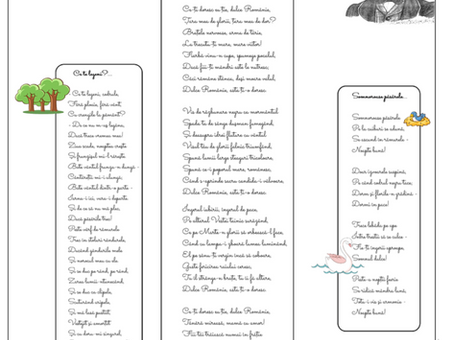 Ce te legeni?...
Ce te legeni, codrule,
Fără ploaie, fără vânt,
Cu crengile la pământ?
- De ce nu m-aș legăna,
Dacă trece vremea mea!
Ziua scade, noaptea crește
Și frunzișul mi-l rărește.
Bate vântul frunza-n dungă -
Cântăreții mi-i alungă;
Bate vântul dintr-o parte -
Iarna-i ici, vara-i departe.
Și de ce să nu mă plec,
Dacă păsările trec!
Peste vârf de rămurele
Trec în stoluri rândunele,
Ducând gândurile mele
Și norocul meu cu ele.
Și se duc pe rând, pe rând,
Zarea lumii-ntunecând,
Și se duc ca clipele,
Scuturând aripele,
Și mă lasă pustiit,
Vestejit și amorțit
Și cu doru-mi singurel,
Ce-ți doresc eu ție, dulce Românie,
Țara mea de glorii, țara mea de dor?
Brațele nervoase, arma de tărie,
La trecutu-ți mare, mare viitor!
Fiarbă vinu-n cupe, spumege pocalul,
Dacă fiii-ți mândri aste le nutresc;
Căci rămâne stânca, deși moare valul,
Dulce Românie, asta ți-o doresc.
Vis de răzbunare negru ca mormântul
Spada ta de sânge dușman fumegând,
Și deasupra idrei fluture cu vântul
Visul tău de glorii falnic triumfând,
Spună lumii large steaguri tricoloare,
Spună ce-i poporul mare, românesc,
Când s-aprinde sacru candida-i vâlvoare,
Dulce Românie, asta ți-o doresc.
Îngerul iubirii, îngerul de pace,
Pe altarul Vestei tainic surâzând,
Ce pe Marte-n glorii să orbească-l face,
Când cu lampa-i zboară lumea luminând,
El pe sânu-ți vergin încă să coboare,
Guste fericirea raiului ceresc,
Tu îl strânge-n brațe, tu îi fă altare,
Dulce Românie, asta ți-o doresc.
Ce-ți doresc eu ție, dulce Românie,
Tânără mireasă, mamă cu amor!
Fiii tăi trăiască numai în frăție
Somnoroase păsărele...
Somnoroase păsărele
Pe la cuiburi se adună,
Se ascund în rămurele -
Noapte bună!
Doar izvoarele suspină,
Pe când codrul negru tace;
Dorm și florile-n grădină -
Dormi în pace!
Trece lebăda pe ape
Între trestii să se culce -
Fie-ți îngerii aproape,
Somnul dulce!
Peste-a nopții feerie
Se ridică mândra lună,
Totu-i vis și armonie -
Noapte bună!